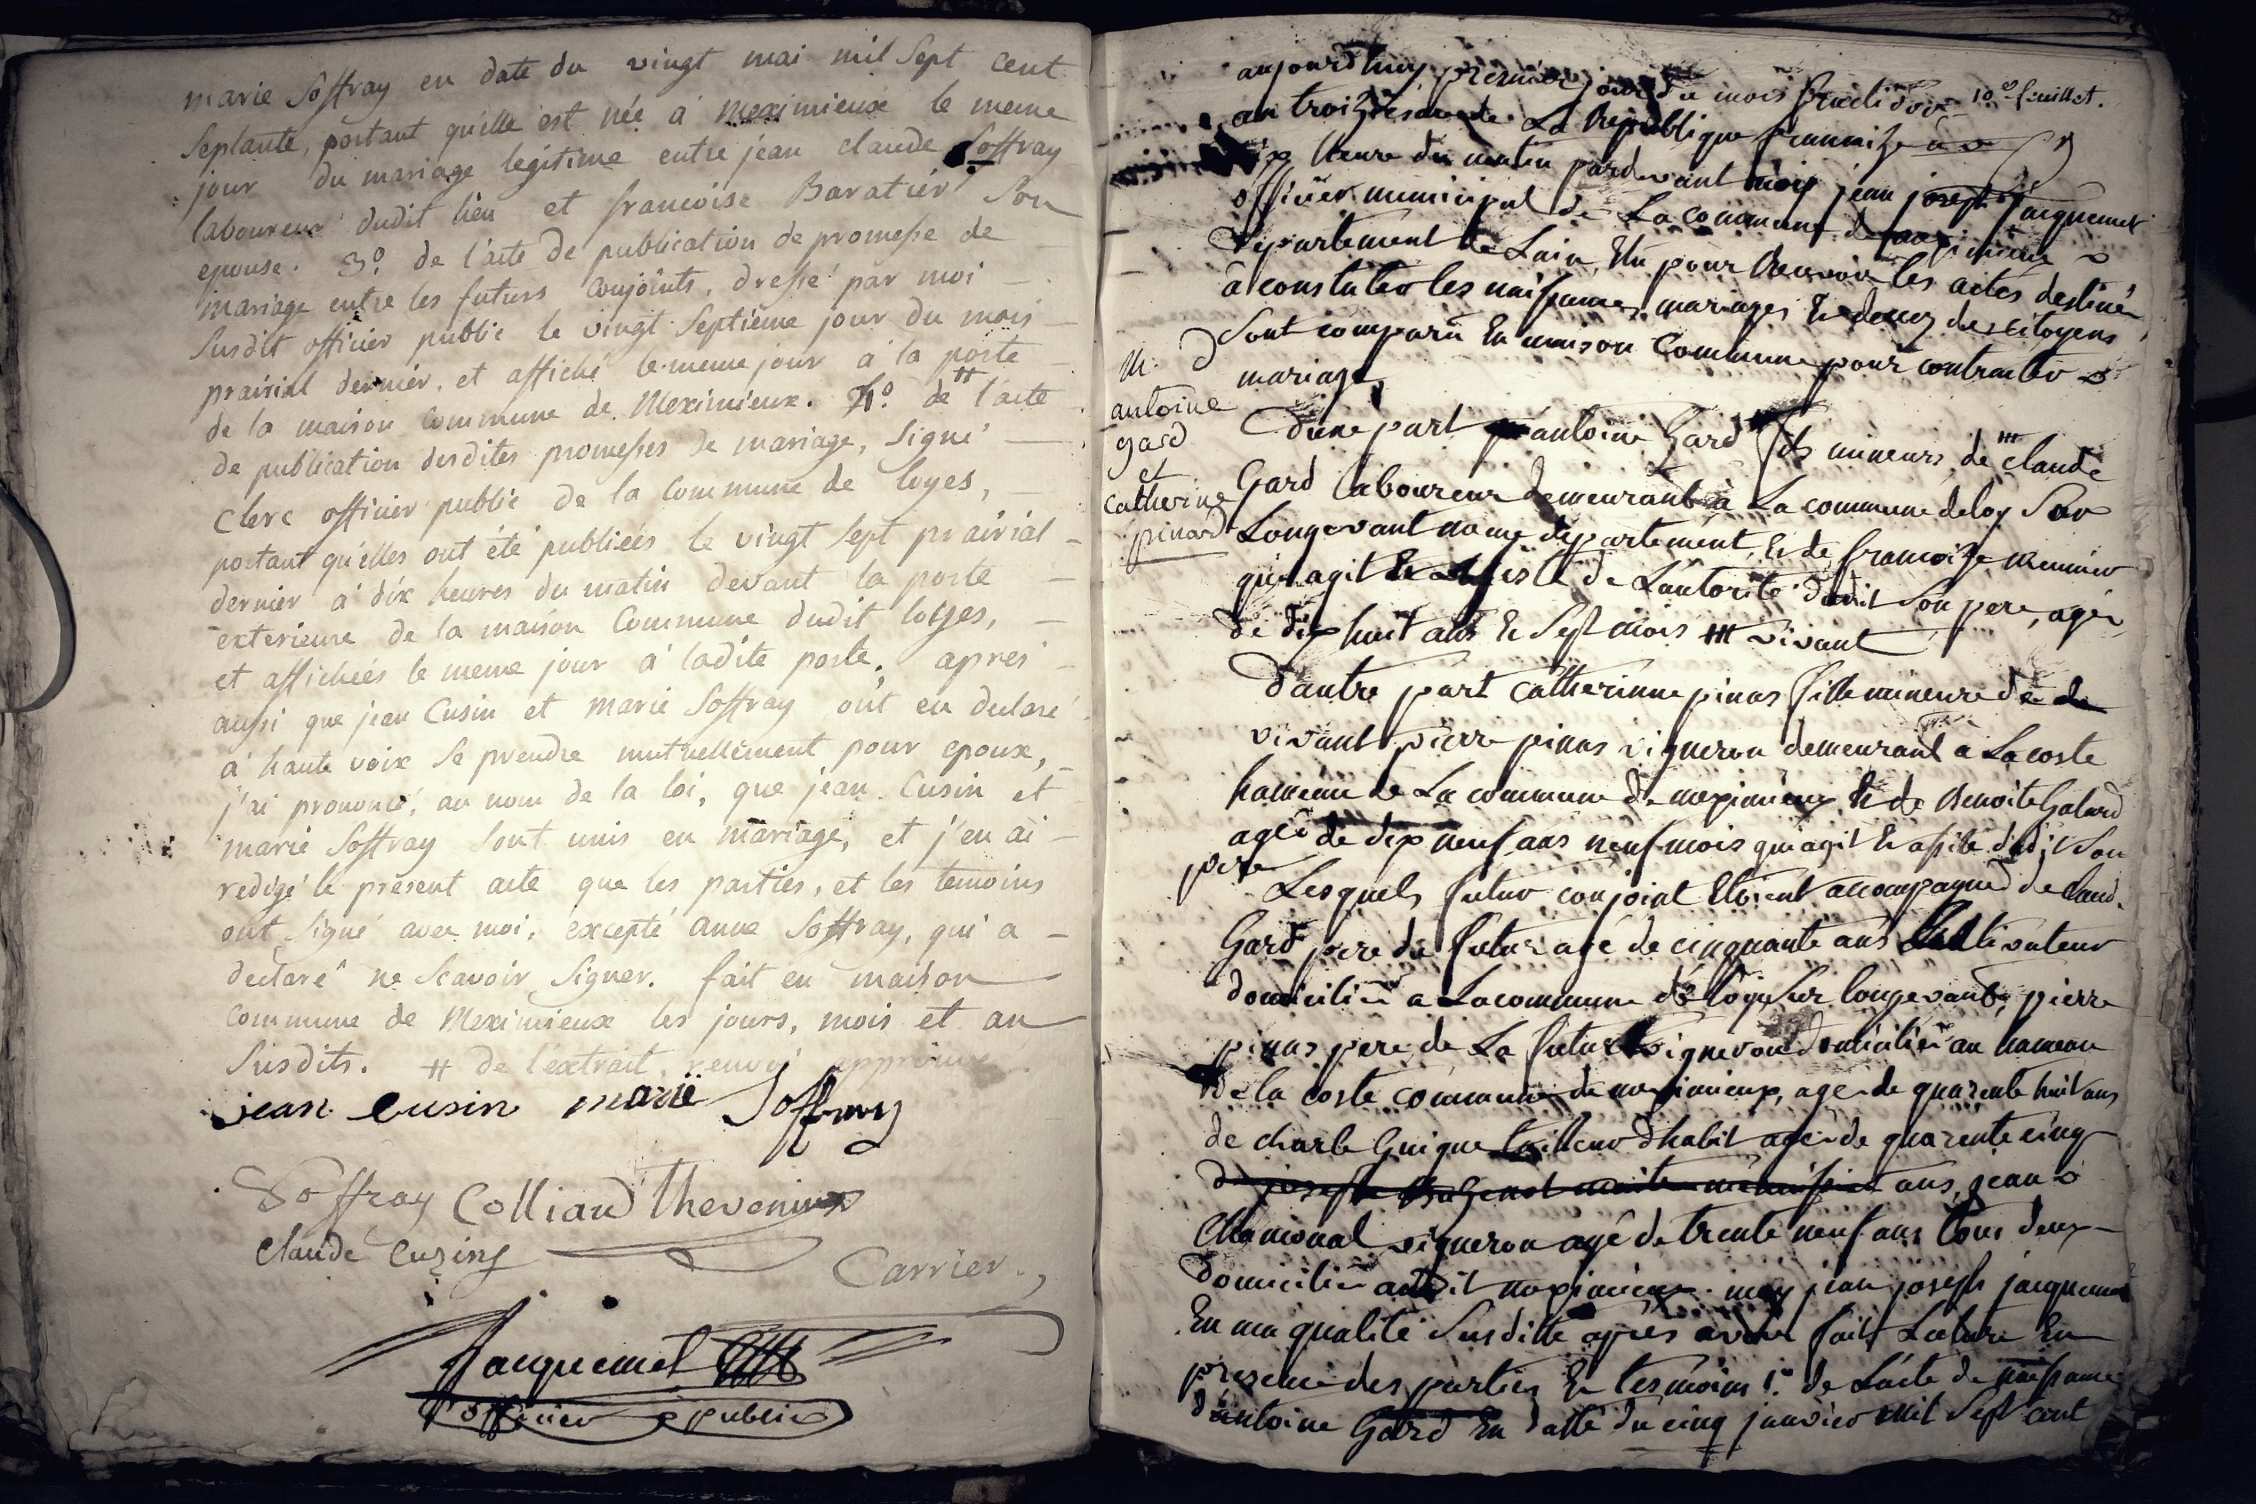 marie Soffray en date du vingt mai mil Sept cent
Septante, portant qu'elle est née a meximieux le meme
jour du mariage legitime entre jean claude Soffray
laboureur dudit lieu et francoise Baratier Son
epouse. 3.° de l'acte de publication de promesse de
mariage entre les futurs conjoints, dressé par moi
Susdit officier public le vingt Septieme jour du mois
prairial dernier, et affiché le meme jour a la porte
de la maison commune de Meximieux. 4.° de # l'acte
de publication desdites promesses de mariage, Signé
Clerc officier public de la commune de loyes,
portant qu'elles ont été publiées le vingt Sept prairial
dernier a dix heures du matin devant la porte
exterieure de la maison Commune dudit loyes,
et affichées le meme jour a ladite porte, apres
aussi que jean Cusin et marie Soffray ont eu declaré
a haute voix Se prendre mutuellement pour epoux,
j'ai prononcé, au nom de la loi, que jean Cusin et
marie Soffray Sont unis en mariage, et j'en ai
redigé le present acte que les parties, et les temoins
ont Signé avec moi, excepté anne Soffray, qui a
declaré ne Scavoir Signer. fait en maison
Commune de Meximieux les jours, mois et an
Susdits. # de l'extrait, renvoi approuvé
jean cusin marie Soffray
Soffray Colliard Thevenin
claude Cuzin
Carrier
Jacquemet
officier public
10e feuillet.
aujourdhuy premier jour du mois fructidor
an troizieme de La Republique francaize
heure du matin pardevant moy jean joseph jacquemet
officier municipal de La commune de meximieux
Departement de Lain, Elu pour Recevoir les actes destiné
a constater les naissances, mariages Et deces des citoyens
Sont comparu En maison Commune pour contracter
mariage,
M.
antoine
gard
et
catherine
pinard
Dune part antoine Gard fils mineurs de # claude
Gard laboureur demeurant a La commune de loy Sur
Longevant meme departement, Et de francoize meunier
qui agit Et assisté de Lautorité dudit Son pere, agé
de dix huit ans Et Sept mois # vivant
Dautre part catherinne pinas fille mineure de
vivant pierre pinas vigneron demeurant a La coste
hameau de La commune de meximieux Et de Benoite Galand
agée de dix neuf ans neuf mois qui agit Et assisté dudit Son
pere
Lesquels futur conjoint Etoient accompagné de claud.
Gard pere du futur agé de cinquante ans cultivateur
domicilié a La commune de loye Sur longevant, pierre
pinas pere de La future vigneron domicilié au hameau
de la coste commune de meximieux, age de quarente huit ans
de charle Guigue tailleur dhabit agé de quarente cinq
ans, jean
Chamonal vigneron agé de trente neuf ans tous deux
domicilié audit meximieux. moy jean joseph jacquemet
En ma qualité Susditte apres avoir fait Lecture En
presence des parties Et tesmoins 1.° de Lacte de naissance
dantoine Gard En datte du cinq janvier mil Sept cent